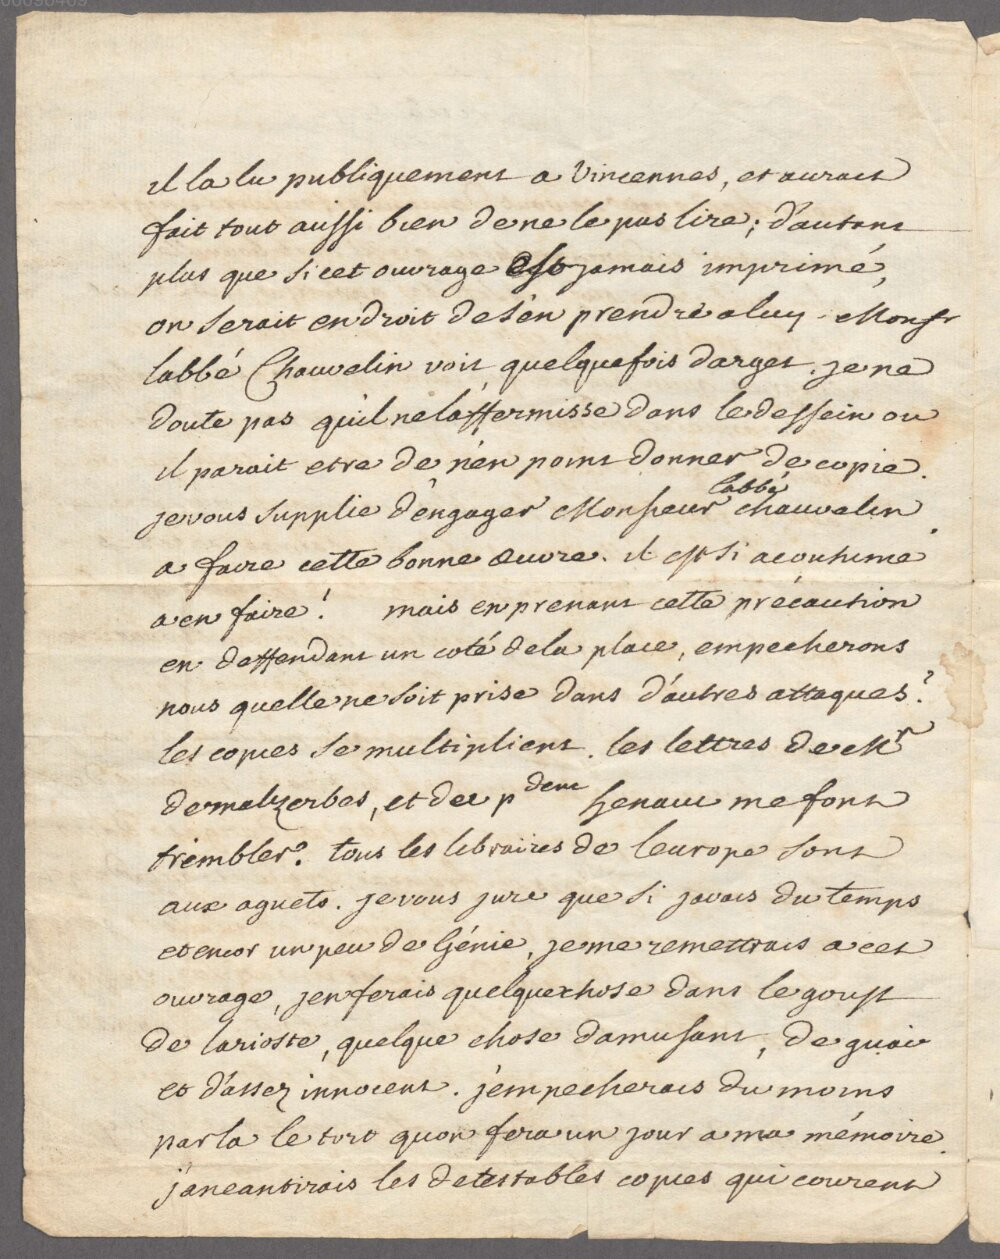 il la lu publiquement a Vincennes, et aurait
fait tout aussi bien de ne le pas lire; d'autant
plus que si cet ouvrage est jamais imprimé,
on serait en droit de s'én prendre a luy. Monsr
labbé Chauvelin voit quelquefois darget. je ne
doute pas qu'il ne laffermisse dans le dessein ou
il parait etre de n'én point donner de copie.
je vous supplie d'éngager Monsieur labbé chauvelin
a faire cette bonne œuvre. il est si acoutumé
a en faire! mais en prenant cette précaution
en deffendant un coté de la place, empecherons
nous quelle ne soit prise dans d'autres attaques?
les copies se multiplient. les lettres de Mr
de malzerbes, et de p dent henaut me font
trembler. tous les libraires de leurope sont
aux aguets. je vous jure que si javais du temps
et encor un peu de Génie, je me remettrais a cet
ouvrage, jen ferais quelquechose dans le goust
de larioste, quelque chose damusant, de guai
et d'assez innocent. j'empecherais du moins
par la le tort quon fera un jour a ma mémoire.
j'aneantirais les detestables copies qui courent